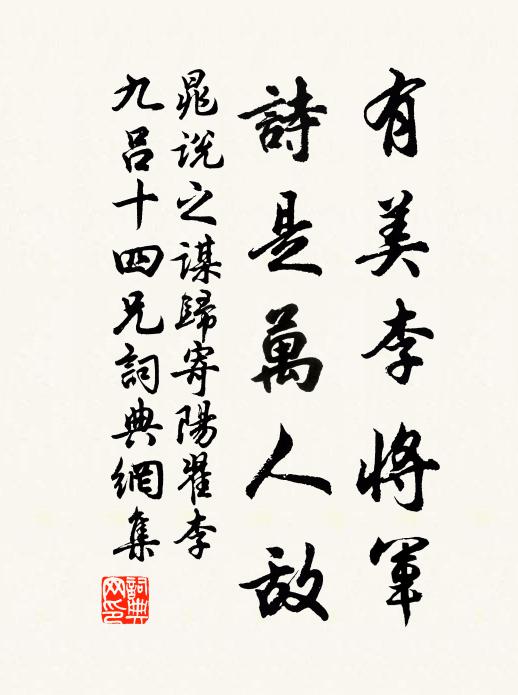 有美李將軍
詩是萬人敵
晁說之謀歸寄陽翟李
九呂十四兄詞典網集
詞典网印